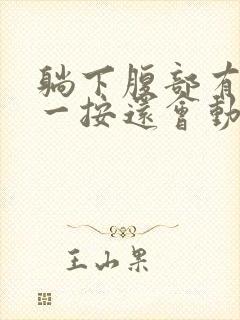 躺下腹部有
一按還會動
王山果